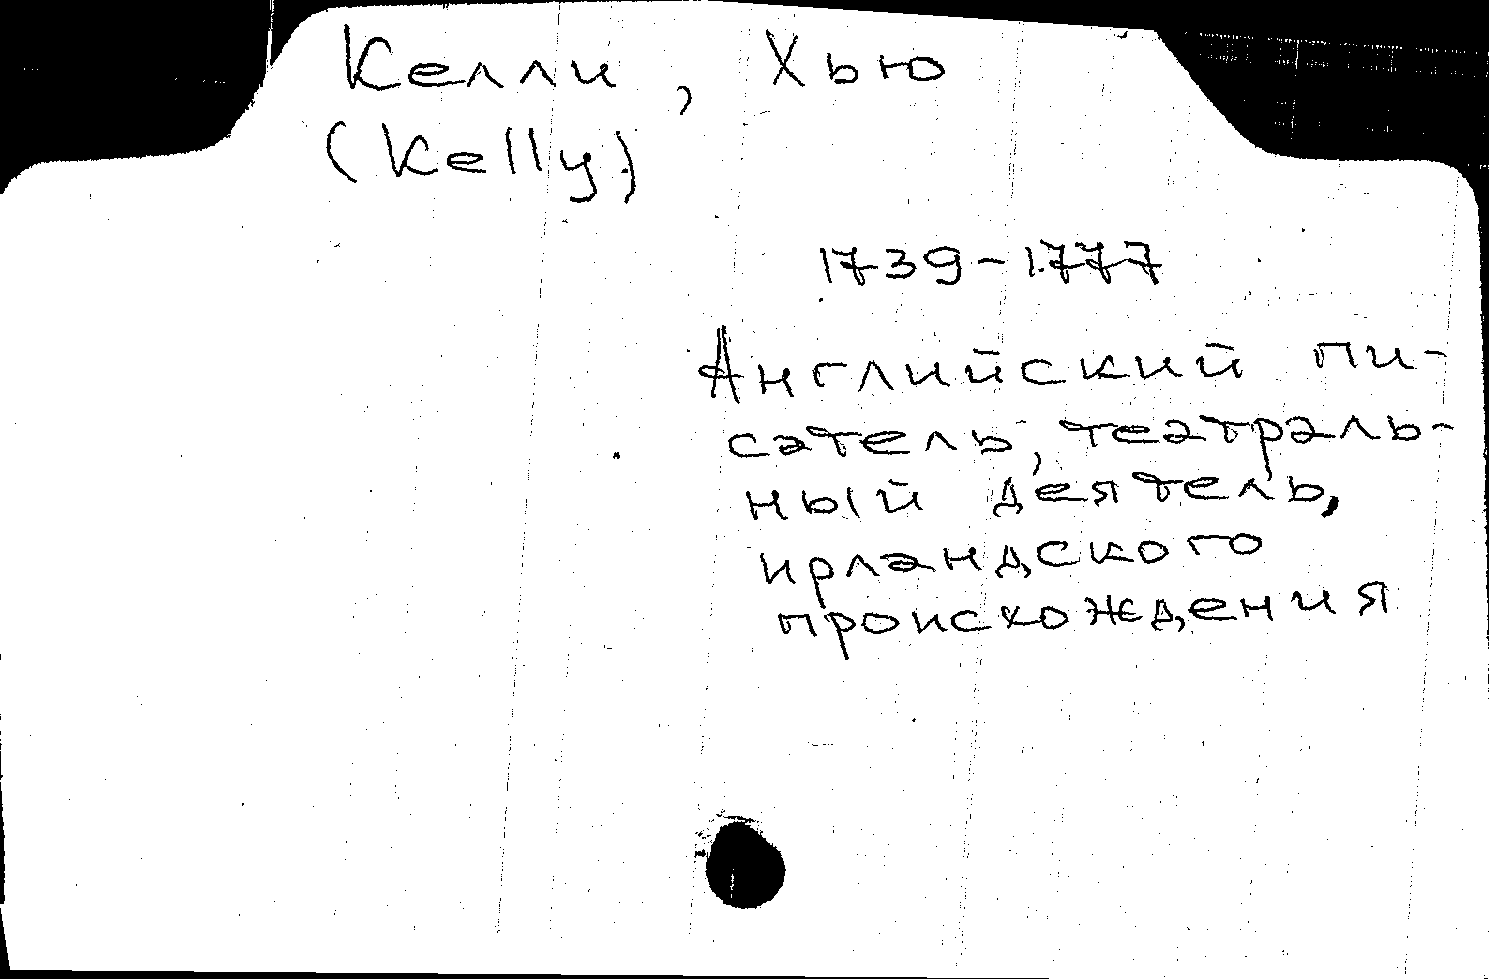 Келли, Хью
(Kelly)
1739-1777
Английский пи-
сатель, театраль-
ный деятель,
ирландского
происхождения